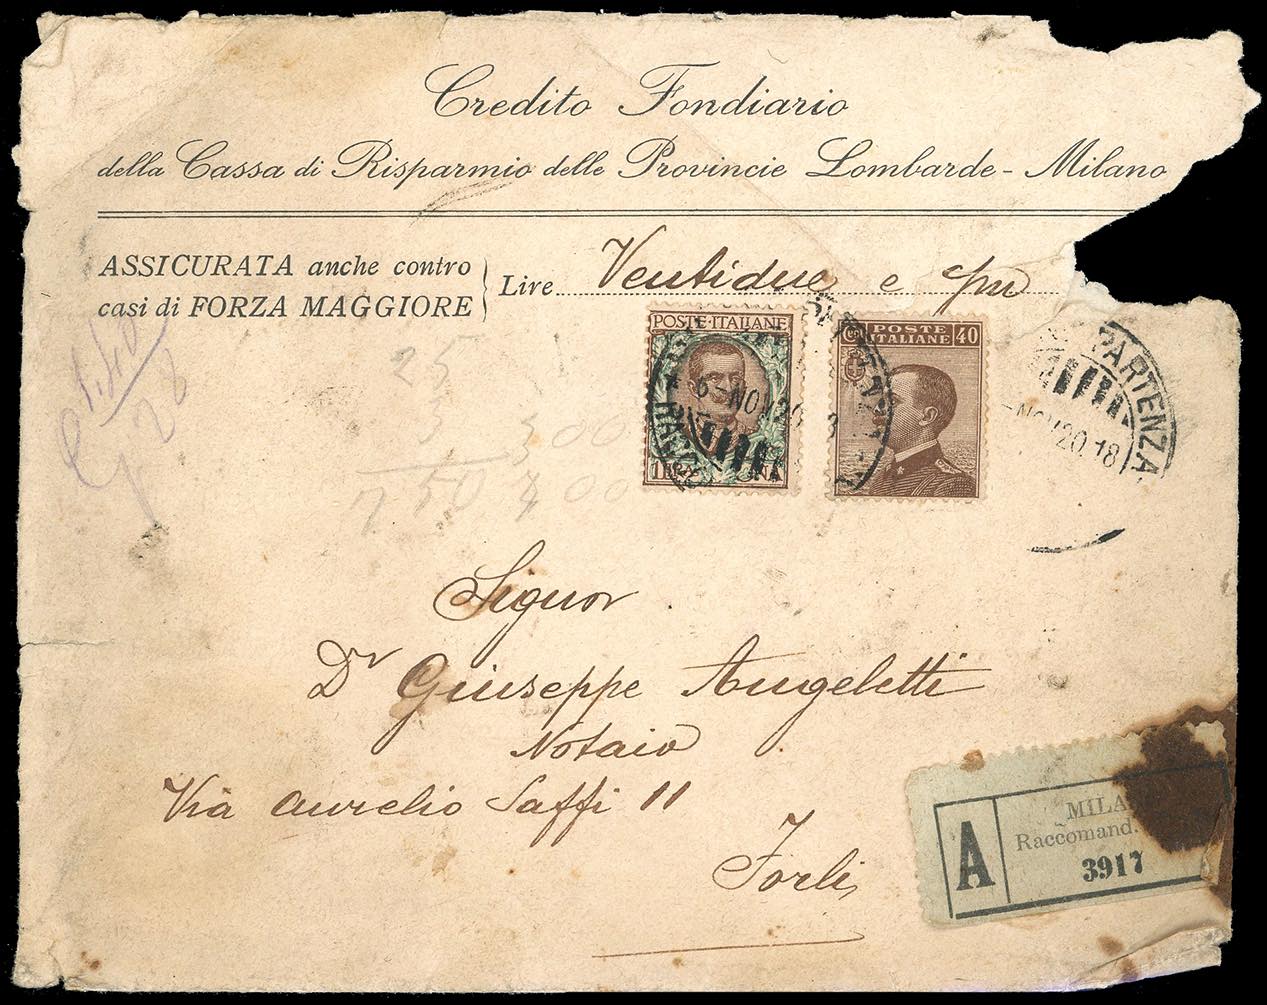 Credito Fondiario
della Cassa di Risparmio delle Provincie Lombarde - Milano
ASSICURATA anche contro
casi di FORZA MAGGIORE
Lire Ventidue e
POSTE·ITALIANE
POSTE
ITALIANE 40
6-NOV 20
PARTENZA
NOV 20.18
1.40
28
25
300
50 400
Signor
Dr Giuseppe Angeletti
Notaio
Via Aurelio Saffi 11
Forlì
A
Raccomand.
3917